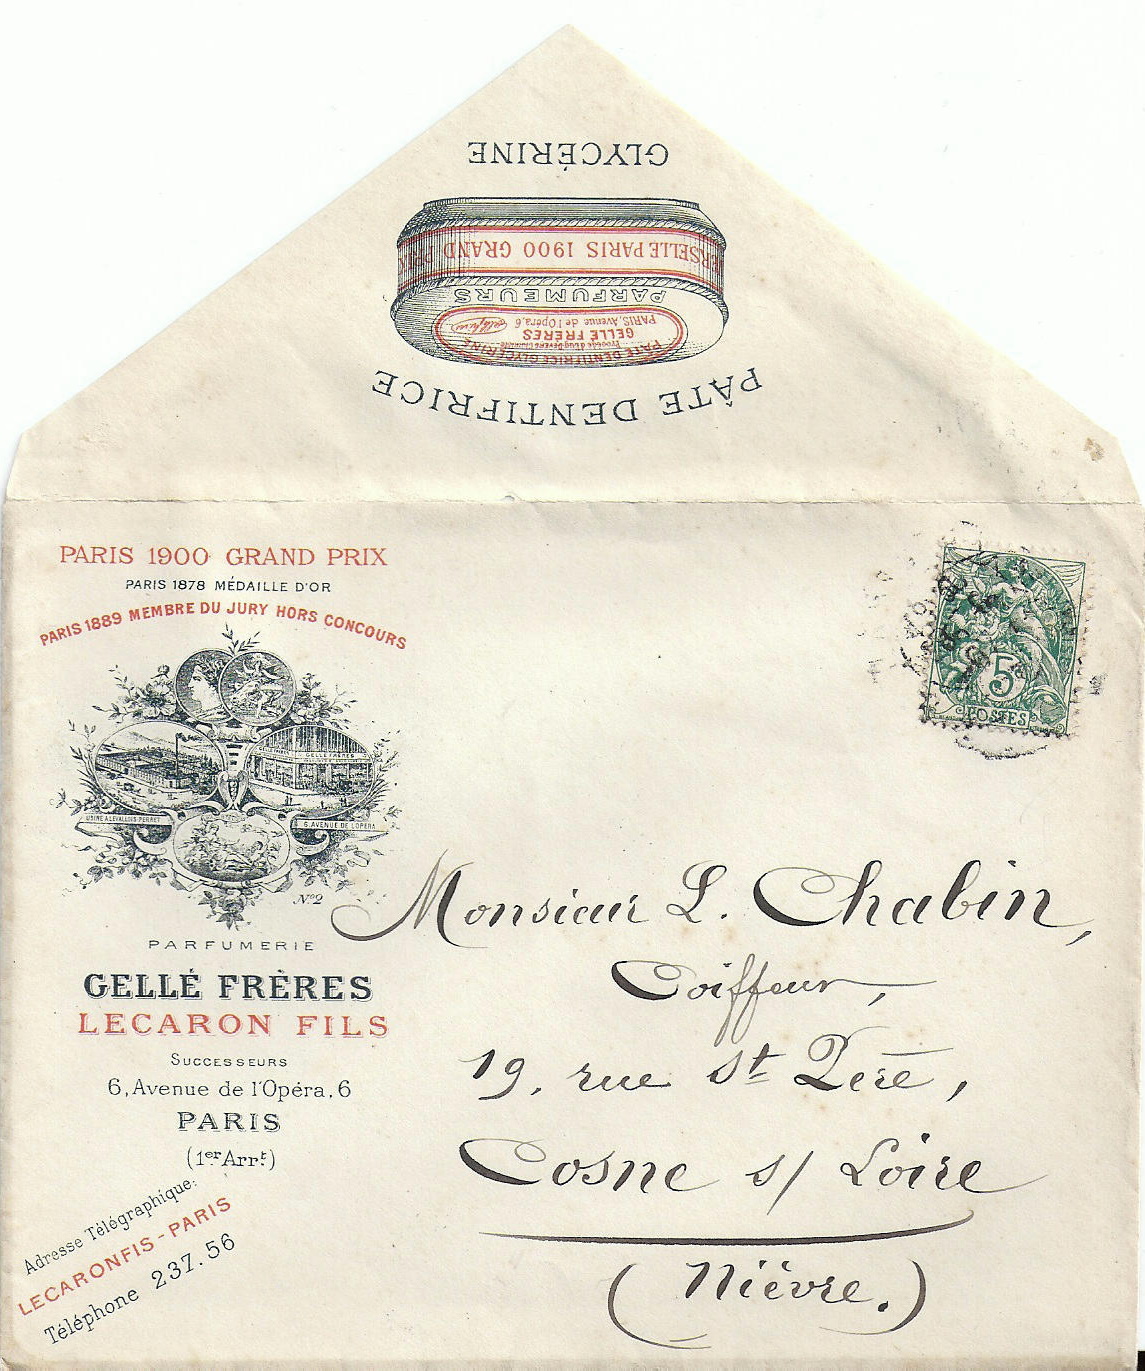 GLYCÉRINE
ERSELLE PARIS 1900 GRAND PRIX
PARFUMEURS
PARIS, Avenue de l'Opéra, 6
GELLÉ FRÈRES
PÂTE DENTIFRICE GLYCÉRINE
PÂTE DENTIFRICE
PARIS 1900 GRAND PRIX
PARIS 1878 MÉDAILLE D'OR
PARIS 1889 MEMBRE DU JURY HORS CONCOURS
GELLÉ FRÈRES
USINE A LEVALLOIS-PERRET
6, AVENUE DE L'OPÉRA
No 2
PARFUMERIE
GELLÉ FRÈRES
LECARON FILS
SUCCESSEURS
6, Avenue de l'Opéra, 6
PARIS
(1er Arrt)
Adresse Télégraphique:
LECARONFIS-PARIS
Téléphone 237.56
5
POSTES
Monsieur L. Chabin,
Coiffeur,
19, rue St Père,
Cosne s/ Loire
(Nièvre.)